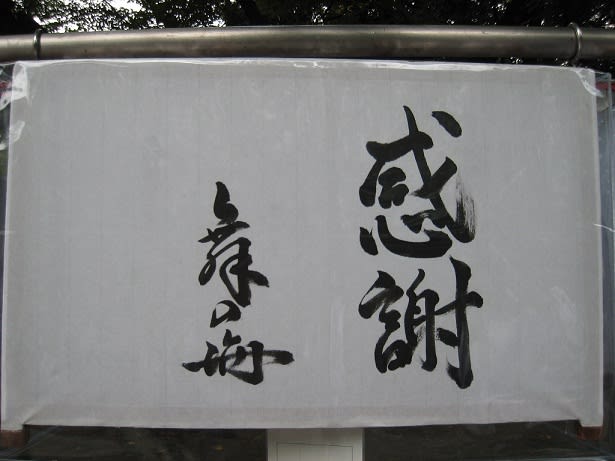 感謝
舞の海